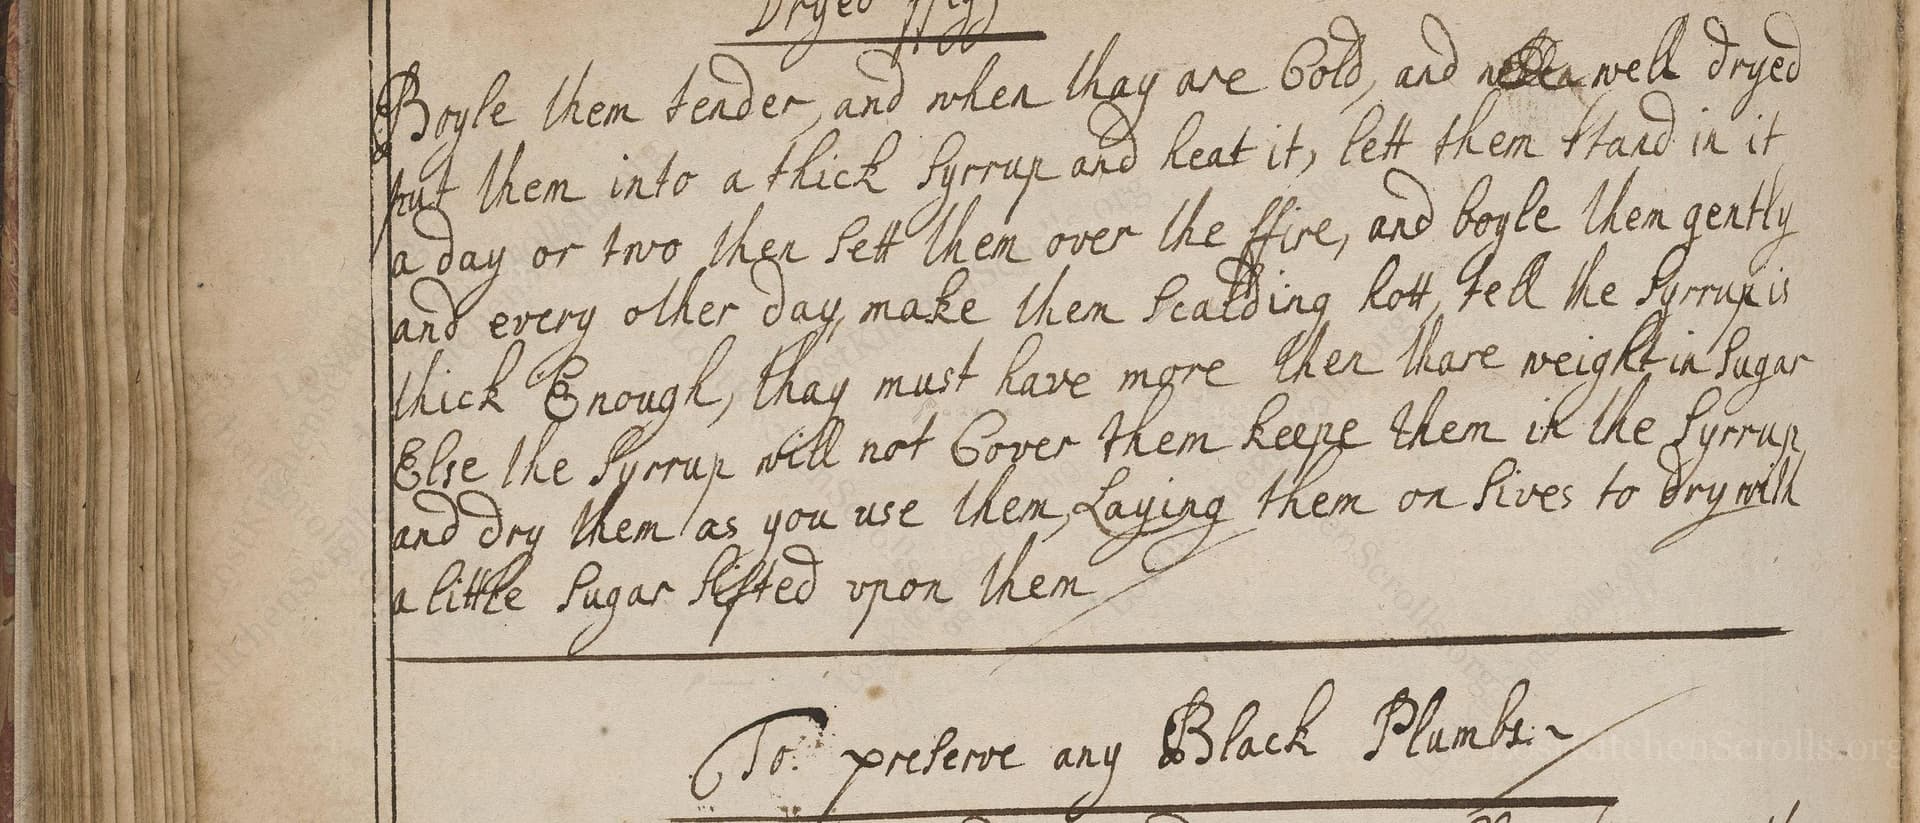 Dryed ffigg
Boyle them tender, and when thay are Cold, and well dryed
put them into a thick Syrrup and heat it, lett them Stand in it
a day or two then Sett them over the ffire, and boyle them gently
and every other day, make them Scalding hott, tell the Syrrup is
thick Enough, thay must have more then thare weight in Sugar
Else the Syrrup will not Cover them keepe them in the Syrrup
and dry them as you use them, Laying them on Sives to dry with
a little Sugar Sifted vpon them
To preserve any Black Plumbs
KitchenScrolls.org